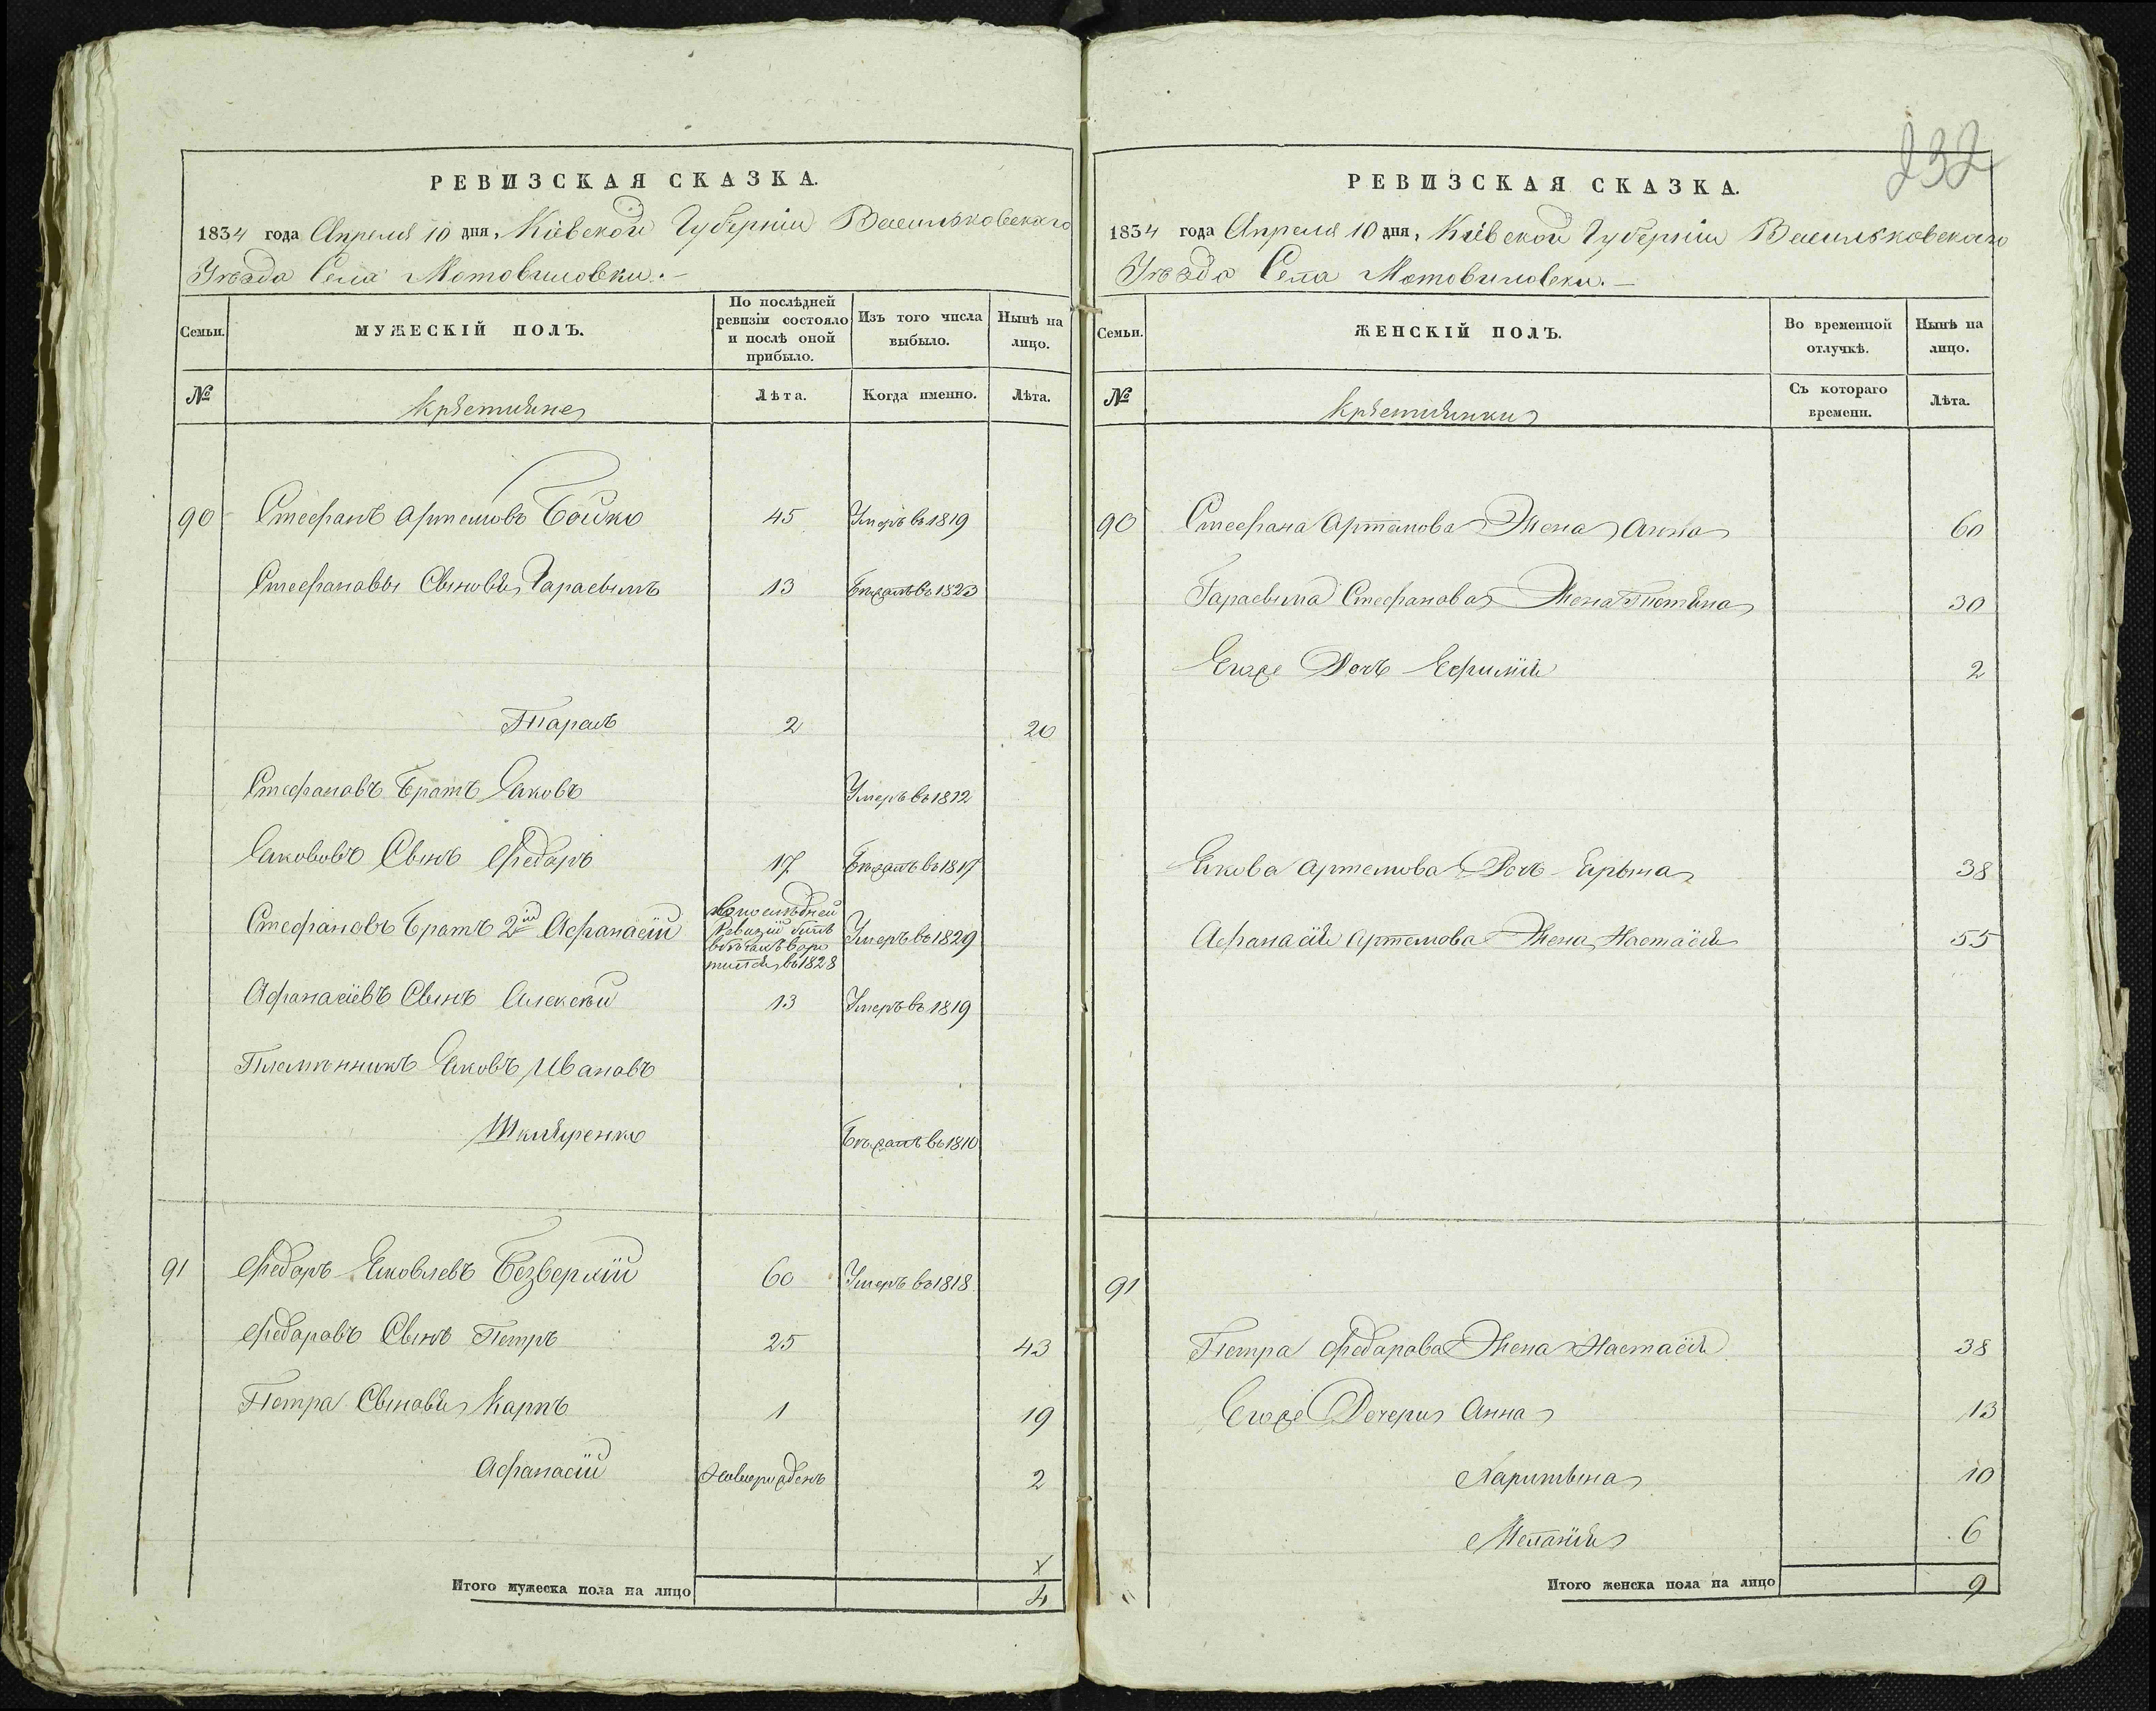 РЕВИЗСКАЯ СКАЗКА.
1834 года Апреля 10 дня, Кіевской Губерніи Васильковскаго
Уѣзда Села Мотовиловки.-
Семьи.
МУЖЕСКІЙ ПОЛЪ.
По послѣдней ревизіи состояло и послѣ оной прибыло.
Изъ того числа выбыло.
Нынѣ на лицо.
№
Крѣстьяне
Лѣта.
Когда именно.
Лѣта.
90 Стефанъ Артемовъ Бойко 45 Умеръ въ 1819
Стефановы Сыновья Гарасымъ 13 Бѣжалъ въ 1823
Тарасъ 2 20
Стефановъ Братъ Яковъ Умеръ въ 1812
Якововъ Сынъ Федоръ 17 Бѣжалъ въ 1817
Стефановъ Братъ 2й Афанасій Умеръ въ 1829
Афанасіевъ Сынъ Алексѣй 13 Умеръ въ 1819
Племѣнникъ Яковъ Ивановъ
Шкляренко Бѣжалъ въ 1810
91 Федоръ Яковлевъ Безверхій 60 Умеръ въ 1818
Федоровъ Сынъ Петръ 25 43
Петра Сыновья Карпъ 1 19
Афанасій Новорожденъ 2
Итого мужеска пола на лицо 4
232
РЕВИЗСКАЯ СКАЗКА.
1834 года Апреля 10 дня, Кіевской Губерніи Васильковскаго
Уѣзда Села Мотовиловки.-
Семьи.
ЖЕНСКІЙ ПОЛЪ.
Во временной отлучкѣ.
Нынѣ на лицо.
№
Крѣстьянки
Съ котораго времени.
Лѣта.
90 Стефана Артемова Жена Анна 60
Гарасыма Стефанова Жена 30
Єго же Дочь Ефимія 2
Якова Артемова Дочь Ирына 38
Афанасія Артемова Жена Настасія 55
91
Петра Федорова Жена Настасія 38
Єго же Дочери Анна 13
Харитына 10
Меланія 6
Итого женска пола на лицо 9